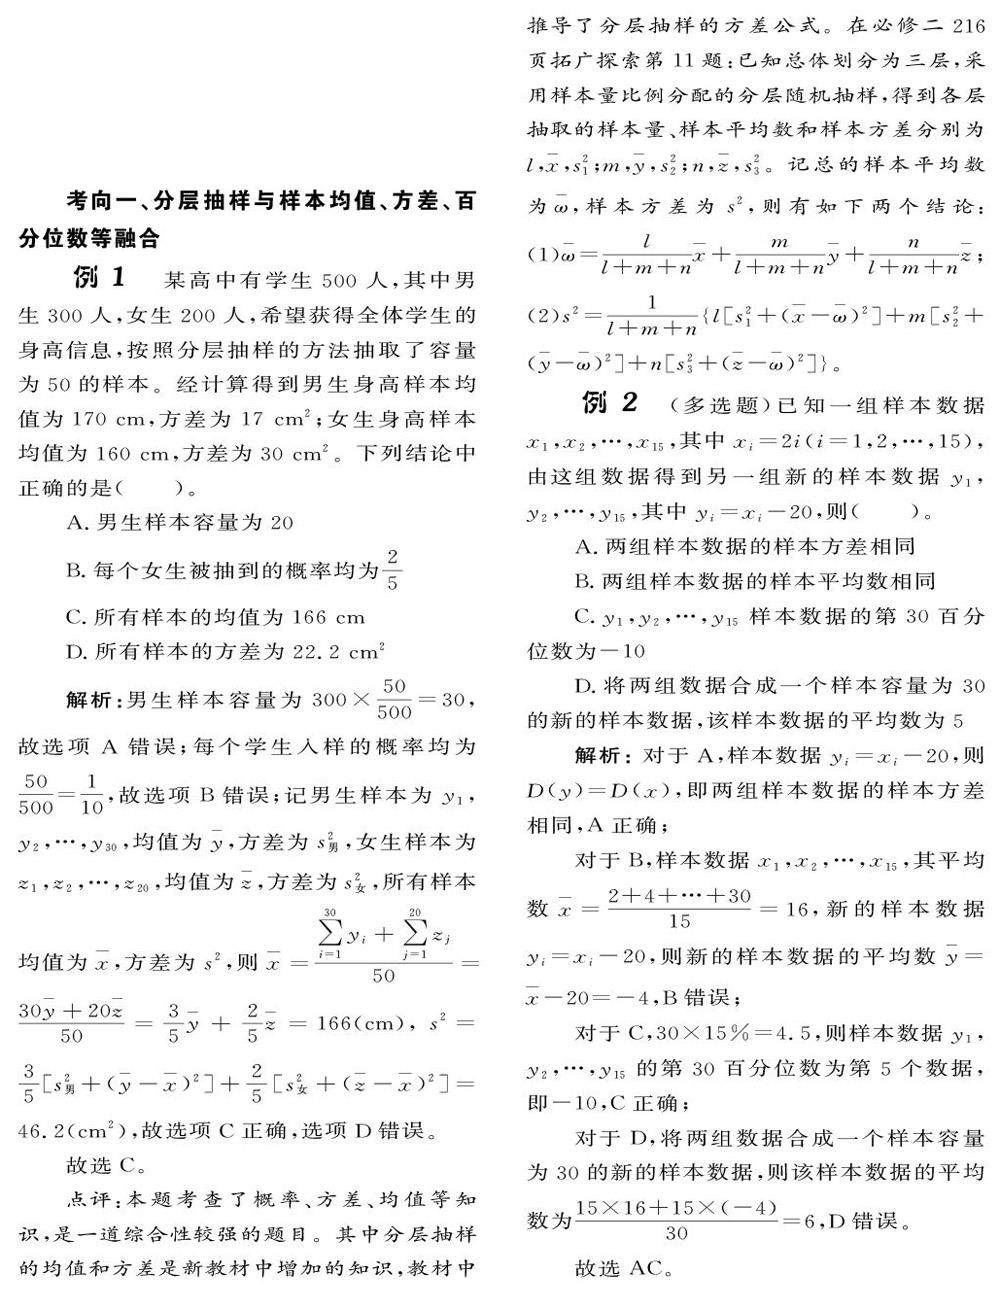 考向一、分层抽样与样本均值、方差、百
分位数等融合
例 1 某高中有学生 500 人,其中男
生 300 人,女生 200 人,希望获得全体学生的
身高信息,按照分层抽样的方法抽取了容量
为 50 的样本。经计算得到男生身高样本均
值为 170 cm,方差为 17 cm²;女生身高样本
均值为 160 cm,方差为 30 cm²。下列结论中
正确的是(  )。
A. 男生样本容量为 20
B. 每个女生被抽到的概率均为 2/5
C. 所有样本的均值为 166 cm
D. 所有样本的方差为 22. 2 cm²
解析:男生样本容量为 300×50/500=30,
故选项 A 错误;每个学生入样的概率均为
50/500=1/10,故选项 B 错误;记男生样本为 y₁,
y₂,…,y₃₀,均值为 ȳ,方差为 s²男,女生样本为
z₁,z₂,…,z₂₀,均值为 z̄,方差为 s²女,所有样本
均值为 x̄,方差为 s²,则 x̄=(∑_{i=1}^{30} y_i+∑_{j=1}^{20} z_j)/50=
(30ȳ+20z̄)/50=3/5 ȳ+2/5 z̄=166(cm), s²=
3/5[s²男+(ȳ-x̄)²]+2/5[s²女+(z̄-x̄)²]=
46. 2(cm²),故选项 C 正确,选项 D 错误。
故选 C。
点评:本题考查了概率、方差、均值等知
识,是一道综合性较强的题目。其中分层抽样
的均值和方差是新教材中增加的知识,教材中
推导了分层抽样的方差公式。在必修二 216
页拓广探索第 11 题:已知总体划分为三层,采
用样本量比例分配的分层随机抽样,得到各层
抽取的样本量、样本平均数和样本方差分别为
l,x̄,s₁²;m,ȳ,s₂²;n,z̄,s₃²。记总的样本平均数
为 ω̄,样本方差为 s²,则有如下两个结论:
(1)ω̄=l/(l+m+n) x̄+m/(l+m+n) ȳ+n/(l+m+n) z̄;
(2)s²=1/(l+m+n){l[s₁²+(x̄-ω̄)²]+m[s₂²+
(ȳ-ω̄)²]+n[s₃²+(z̄-ω̄)²]}。
例 2 (多选题)已知一组样本数据
x₁,x₂,…,x₁₅,其中 xᵢ=2i(i=1,2,…,15),
由这组数据得到另一组新的样本数据 y₁,
y₂,…,y₁₅,其中 yᵢ=xᵢ-20,则(  )。
A. 两组样本数据的样本方差相同
B. 两组样本数据的样本平均数相同
C. y₁,y₂,…,y₁₅ 样本数据的第 30 百分
位数为-10
D. 将两组数据合成一个样本容量为 30
的新的样本数据,该样本数据的平均数为 5
解析:对于 A,样本数据 yᵢ=xᵢ-20,则
D(y)=D(x),即两组样本数据的样本方差
相同,A 正确;
对于 B,样本数据 x₁,x₂,…,x₁₅,其平均
数 x̄=(2+4+…+30)/15=16,新的样本数据
yᵢ=xᵢ-20,则新的样本数据的平均数 ȳ=
x̄-20=-4,B 错误;
对于 C,30×15%=4. 5,则样本数据 y₁,
y₂,…,y₁₅ 的第 30 百分位数为第 5 个数据,
即-10,C 正确;
对于 D,将两组数据合成一个样本容量
为 30 的新的样本数据,则该样本数据的平均
数为(15×16+15×(-4))/30=6,D 错误。
故选 AC。